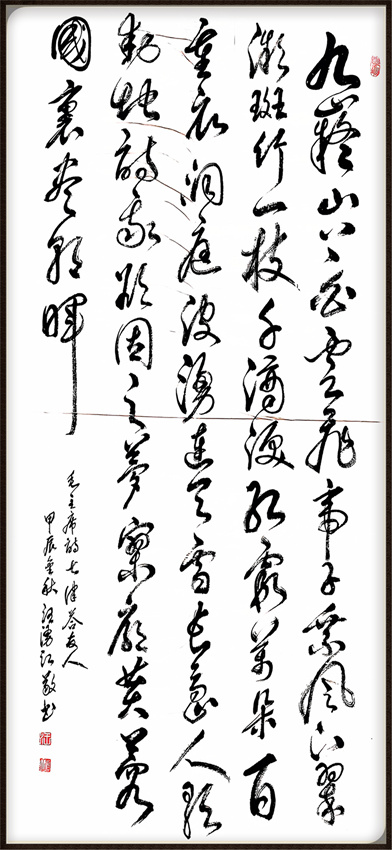 九嶷山上白雲飛帝子乘風下翠
微斑竹一枝千滴淚紅霞萬朵百
重衣洞庭波湧連天雪長島人歌
動地詩我欲因之夢寥廓芙蓉
國裏盡朝暉
毛主席詩七律答友人
甲辰金秋汪湧江敬书